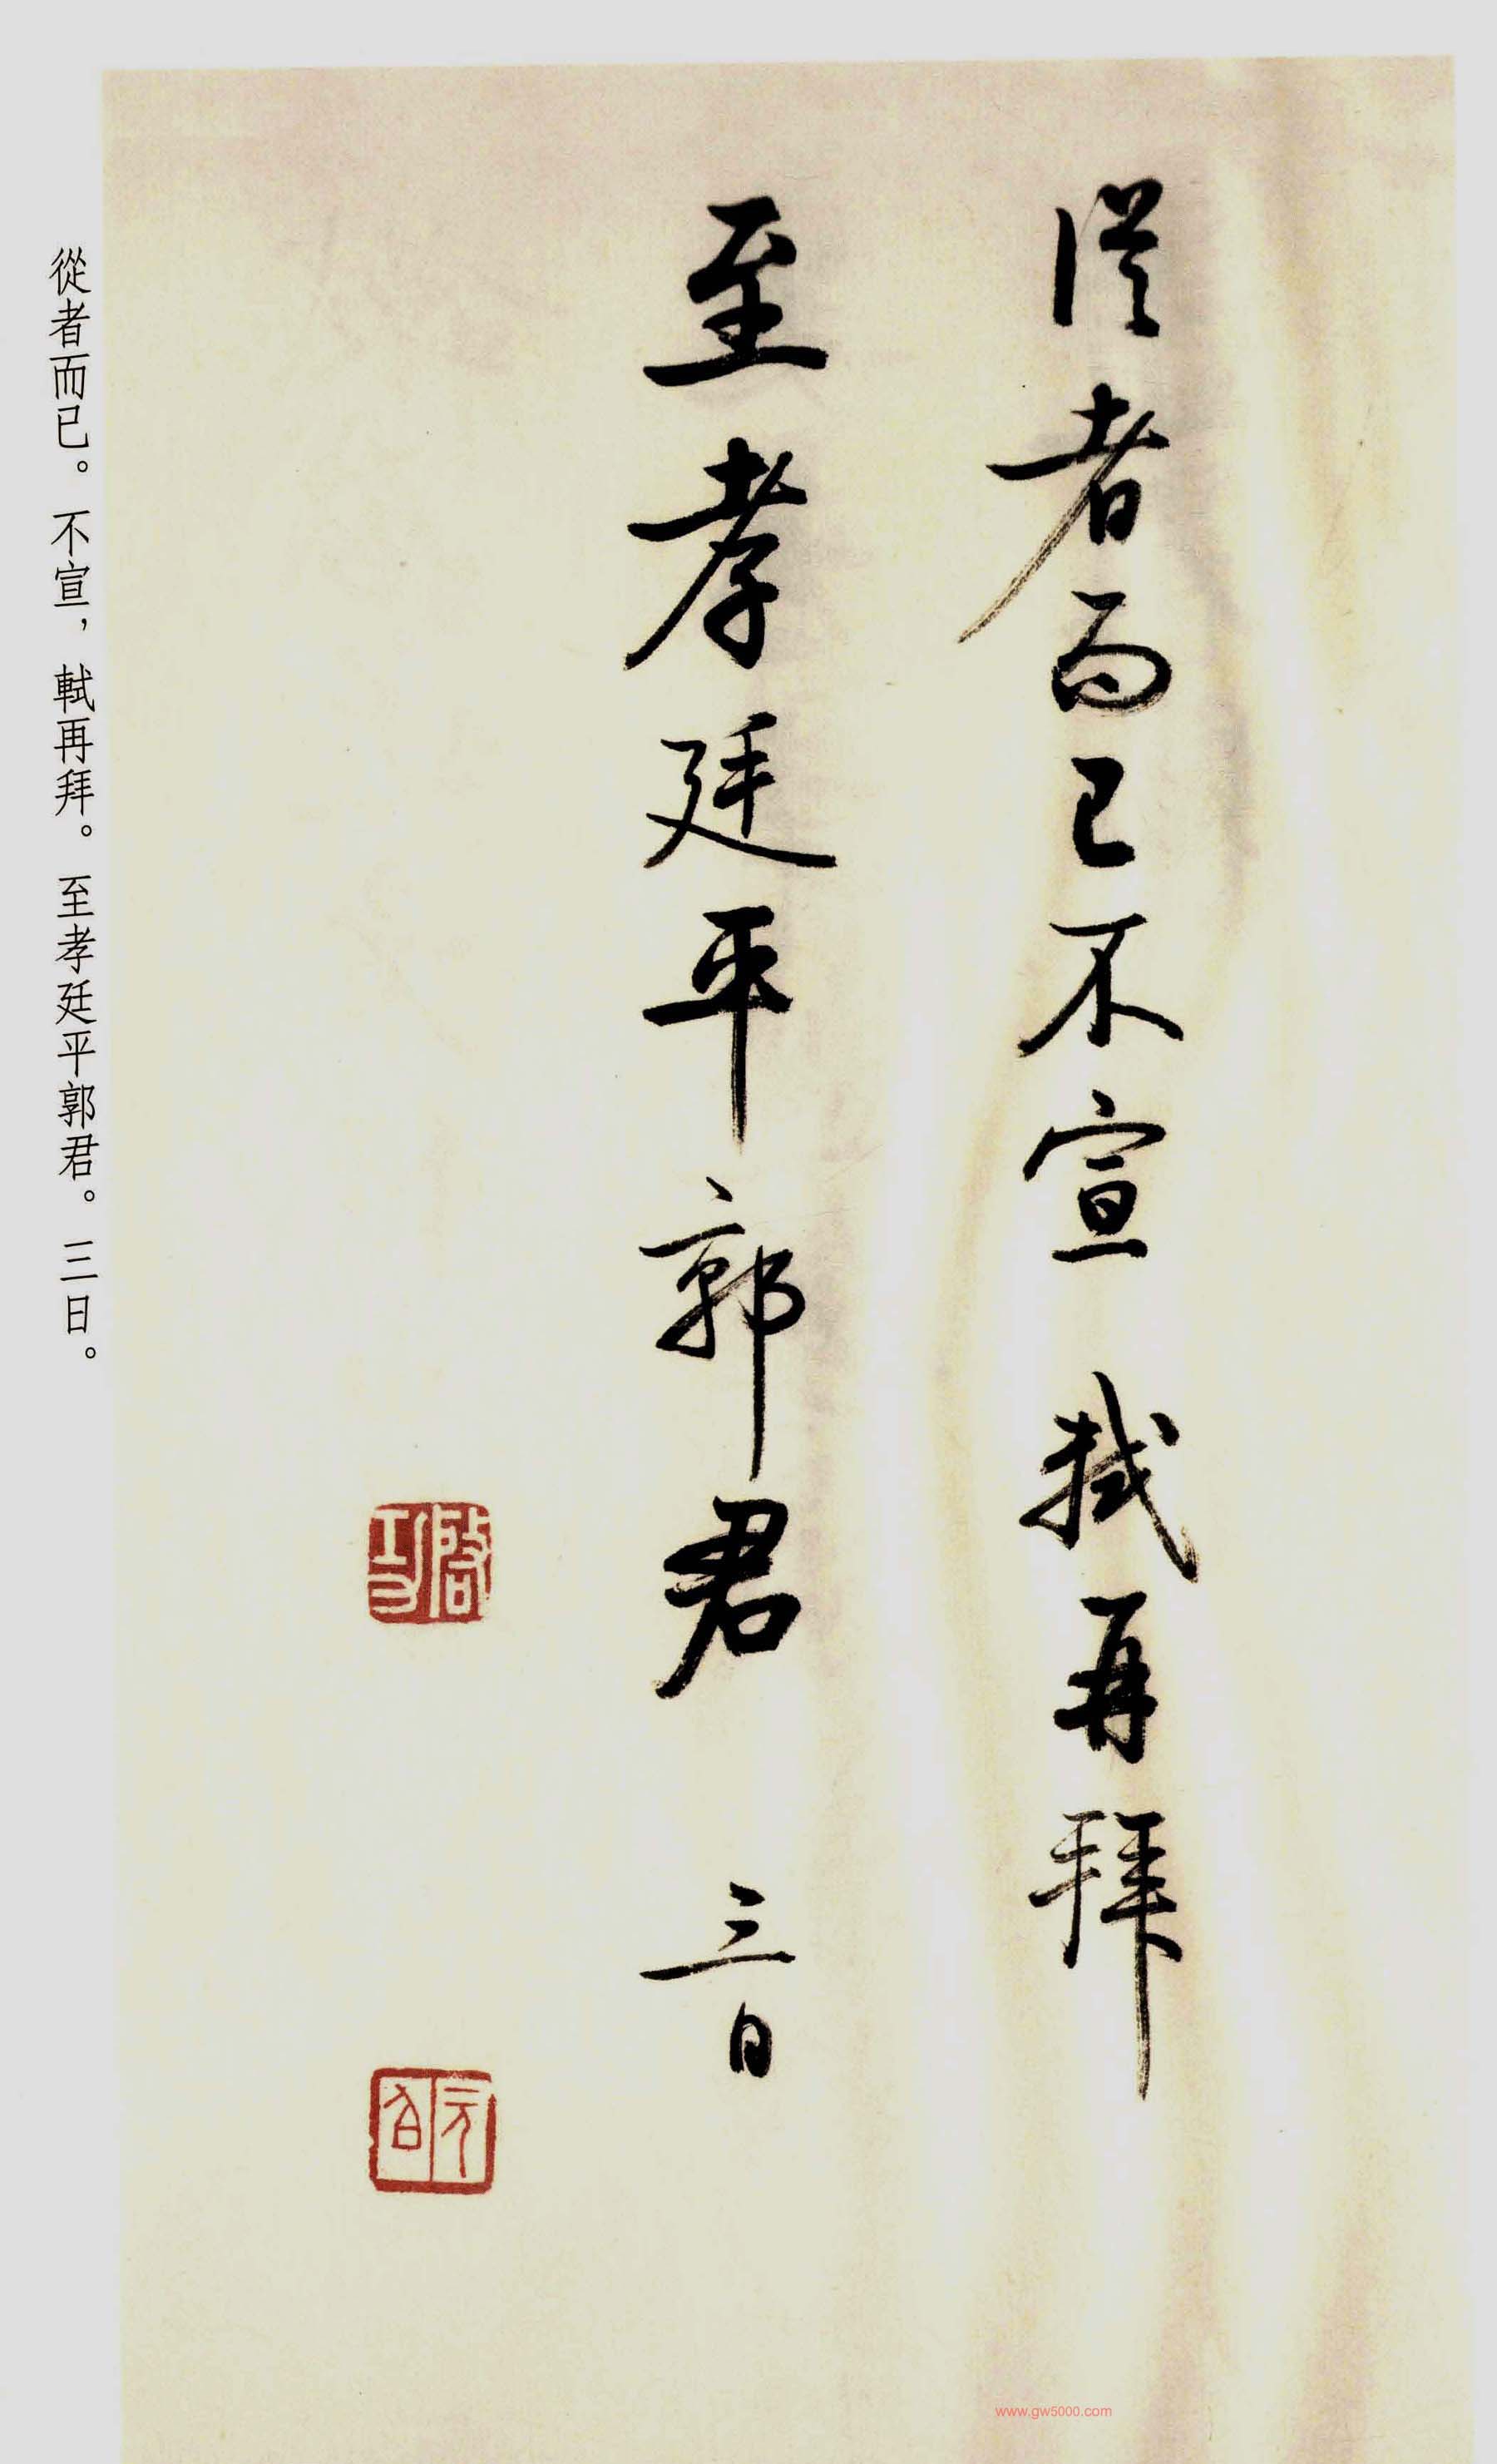 從者而已不宣 軾再拜
至孝廷平郭君 三日
啟功
元白
從者而已。不宣，軾再拜。至孝廷平郭君。三日。
www.gw5000.com